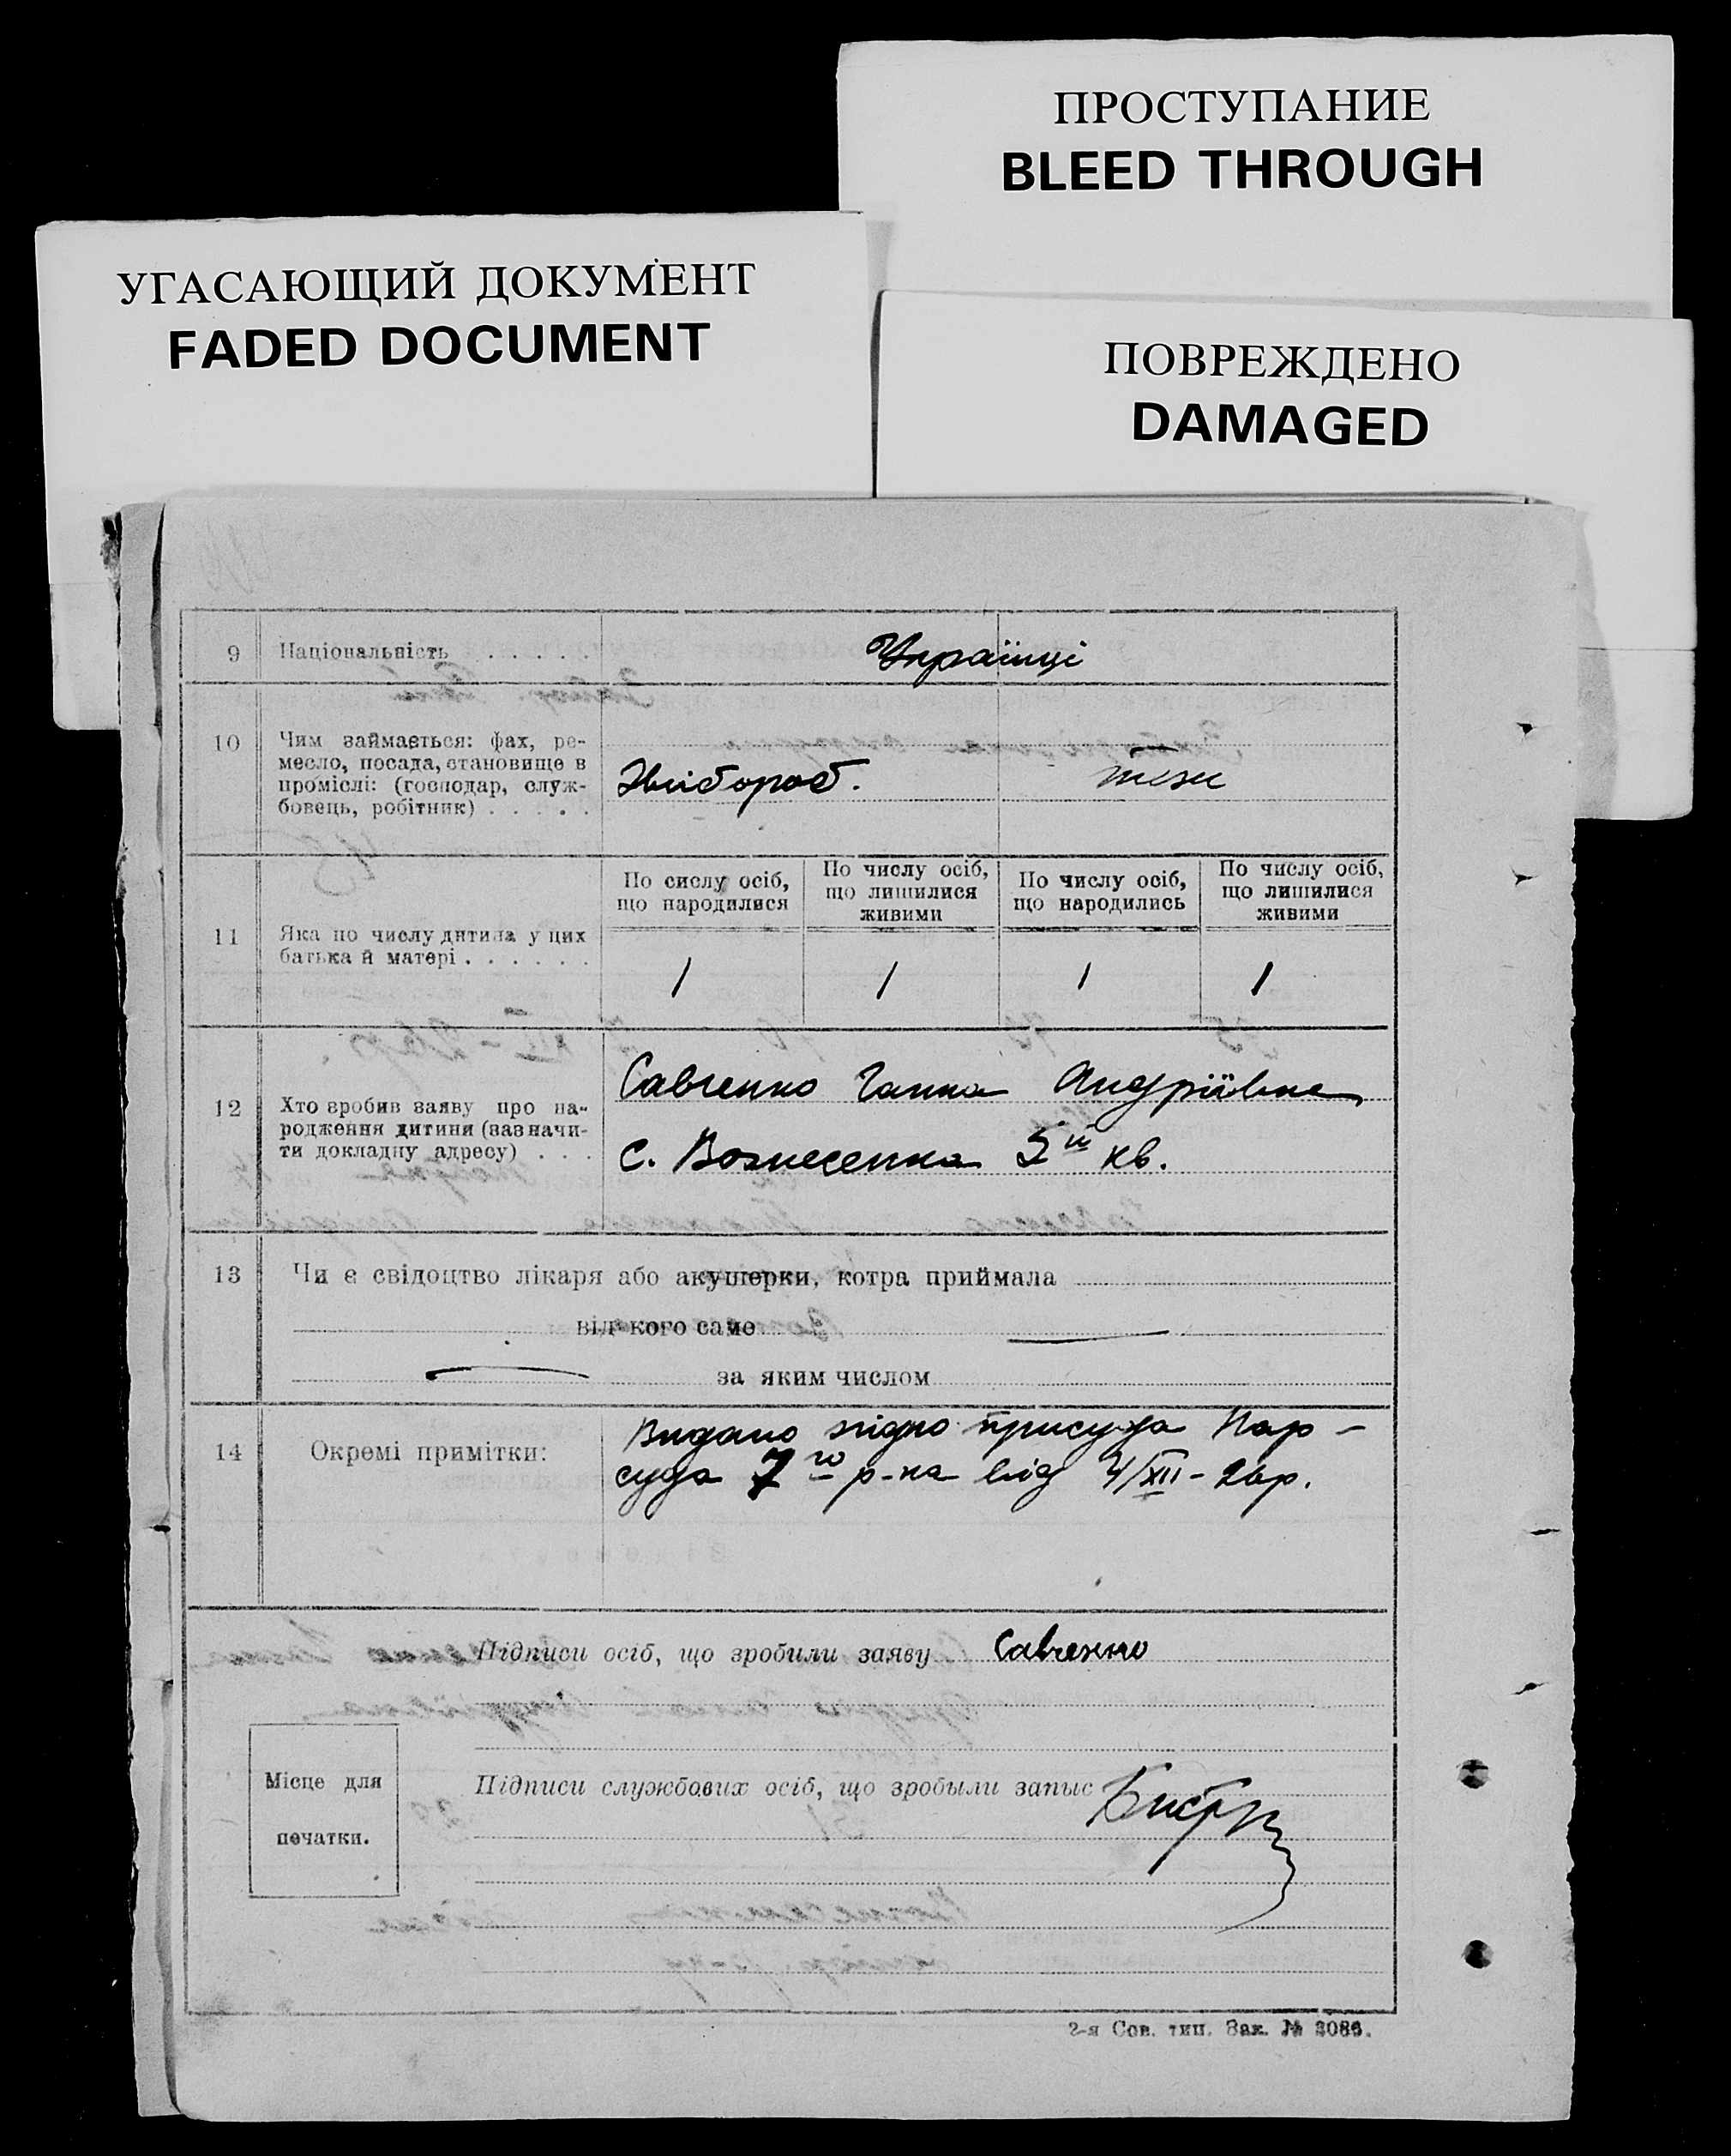 ПРОСТУПАНИЕ
BLEED THROUGH
УГАСАЮЩИЙ ДОКУМЕНТ
FADED DOCUMENT
ПОВРЕЖДЕНО
DAMAGED
9 Національність . . . . . Українці
10 Чим займається: фах, ре-
месло, посада, становище в
проміслі: (господар, служ-
бовець, робітник) . . . . .
Хлібороб. теж
По сислу осіб, що народилися
По числу осіб, що лишилися живими
По числу осіб, що народились
По числу осіб, що лишилися живими
11 Яка по числу дитина у цих
батька й матері . . . . . .
1 1 1 1
12 Хто зробив заяву про на-
родження дитини (зазначи-
ти докладну адресу) . . .
Савченко Ганна Андріївна
с. Вознесенка 5й кв.
13 Чи є свідоцтво лікаря або акушерки, котра приймала
від кого саме
за яким числом
14 Окремі примітки:
Видано згідно присуда Нар-
суда 7го р-на від 4/XII-26р.
Підписи осіб, що зробили заяву Савченко
Підписи службових осіб, що зробыли запыс
Місце для
печатки.
2-я Сов. тип. Зак. № 3086.